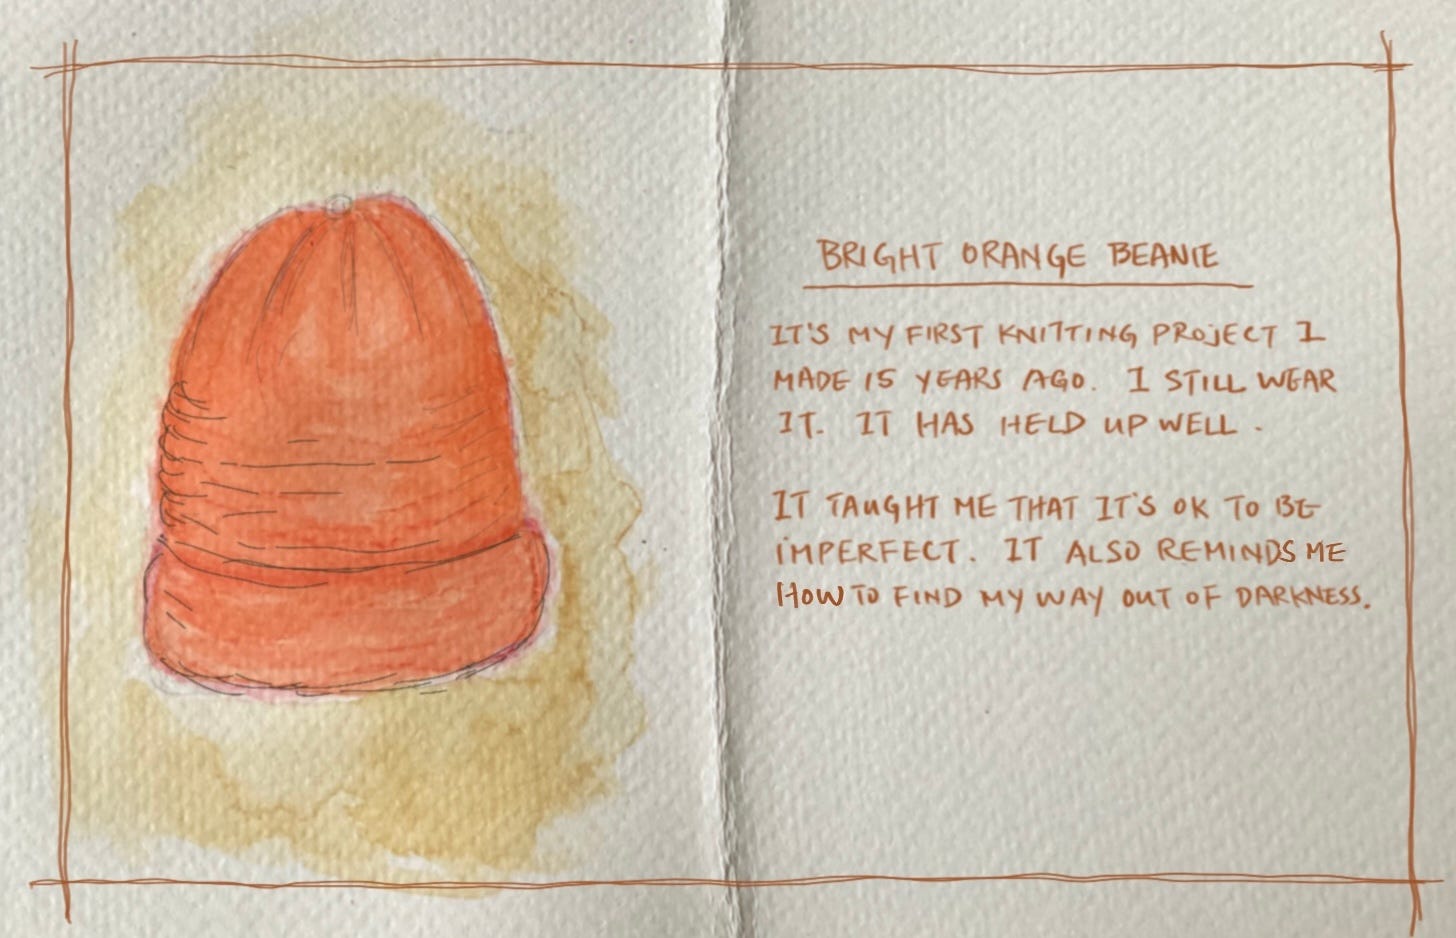 BRIGHT ORANGE BEANIE
IT'S MY FIRST KNITTING PROJECT I
MADE 15 YEARS AGO. I STILL WEAR
IT. IT HAS HELD UP WELL.
IT TAUGHT ME THAT IT'S OK TO BE
IMPERFECT. IT ALSO REMINDS ME
HOW TO FIND MY WAY OUT OF DARKNESS.